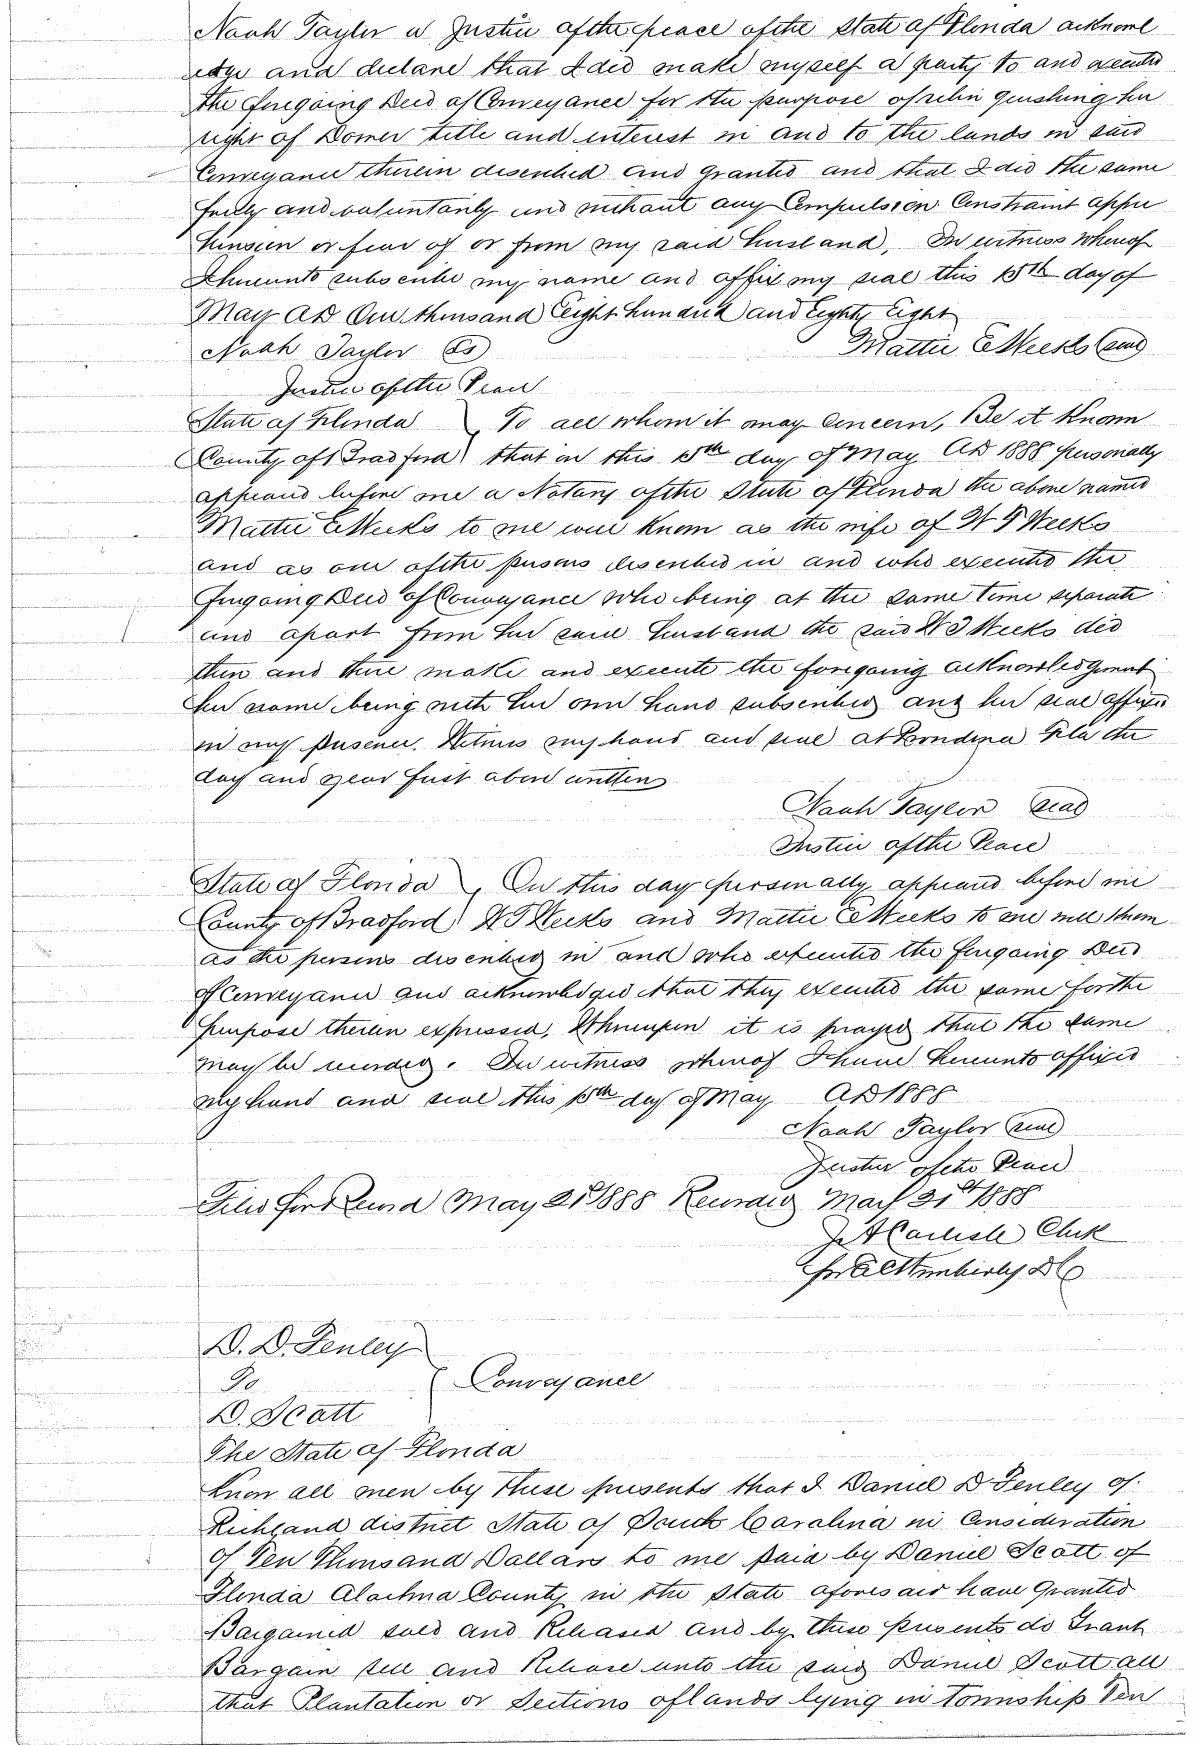 Noah Taylor a Justice of the peace of the State of Florida acknowl
edge and declare that I did make myself a party to and executed
the foregoing Deed of Conveyance for the purpose of relin quishing her
right of Dower title and interest in and to the lands in said
Conveyance therein described and granted and that I did the same
freely and voluntarily and without any Compulsion Constraint appre
hension or fear of or from my said husband, In witness whereof
I hereunto subscribe my name and affix my seal this 15th day of
May AD One thousand Eight hundred and Eighty Eight
Noah Taylor Mattie E Weeks seal
Justice of the Peace
State of Florida } To all whom it may Concern, Be it Known
County of Bradford } that on this 15th day of May AD 1888 personally
appeared before me a Notary of the State of Florida the above named
Mattie E Weeks to me well Known as the wife of W T Weeks
and as one of the persons described in and who executed the
foregoing Deed of Conveyance who being at the same time separate
and apart from her said husband the said W T Weeks did
then and there make and execute the foregoing acknowledgment
her name being with her own hand subscribed and her seal affixed
in my presence. Witness my hand and seal at Fla the
day and year first above written
Noah Taylor seal
Justice of the Peace
State of Florida }, On this day personally appeared before me
County of Bradford } W T Weeks and Mattie E Weeks to me well Known
as the persons described in and who executed the foregoing Deed
of Conveyance and acknowledged that they executed the same for the
purpose therein expressed, Whereupon it is prayed that the same
may be recorded. In witness whereof I have hereunto affixed
my hand and seal this 15th day of May AD 1888
Noah Taylor seal
Justice of the Peace
Filed for Record May 21st 1888 Recorded May 21st 1888
J A Carlisle Clerk
DC
D. D. Fenley
To } Conveyance
D. Scott
The State of Florida
Know all men by these presents that I Daniel D Fenley of
Richland district State of South Carolina in Consideration
of Ten Thousand Dollars to me paid by Daniel Scott of
Florida Alachua County in the State aforesaid have Granted
Bargained sold and Released and by these presents do Grant
Bargain sell and Release unto the said Daniel Scott all
that Plantation or Sections of lands lying in township Ten